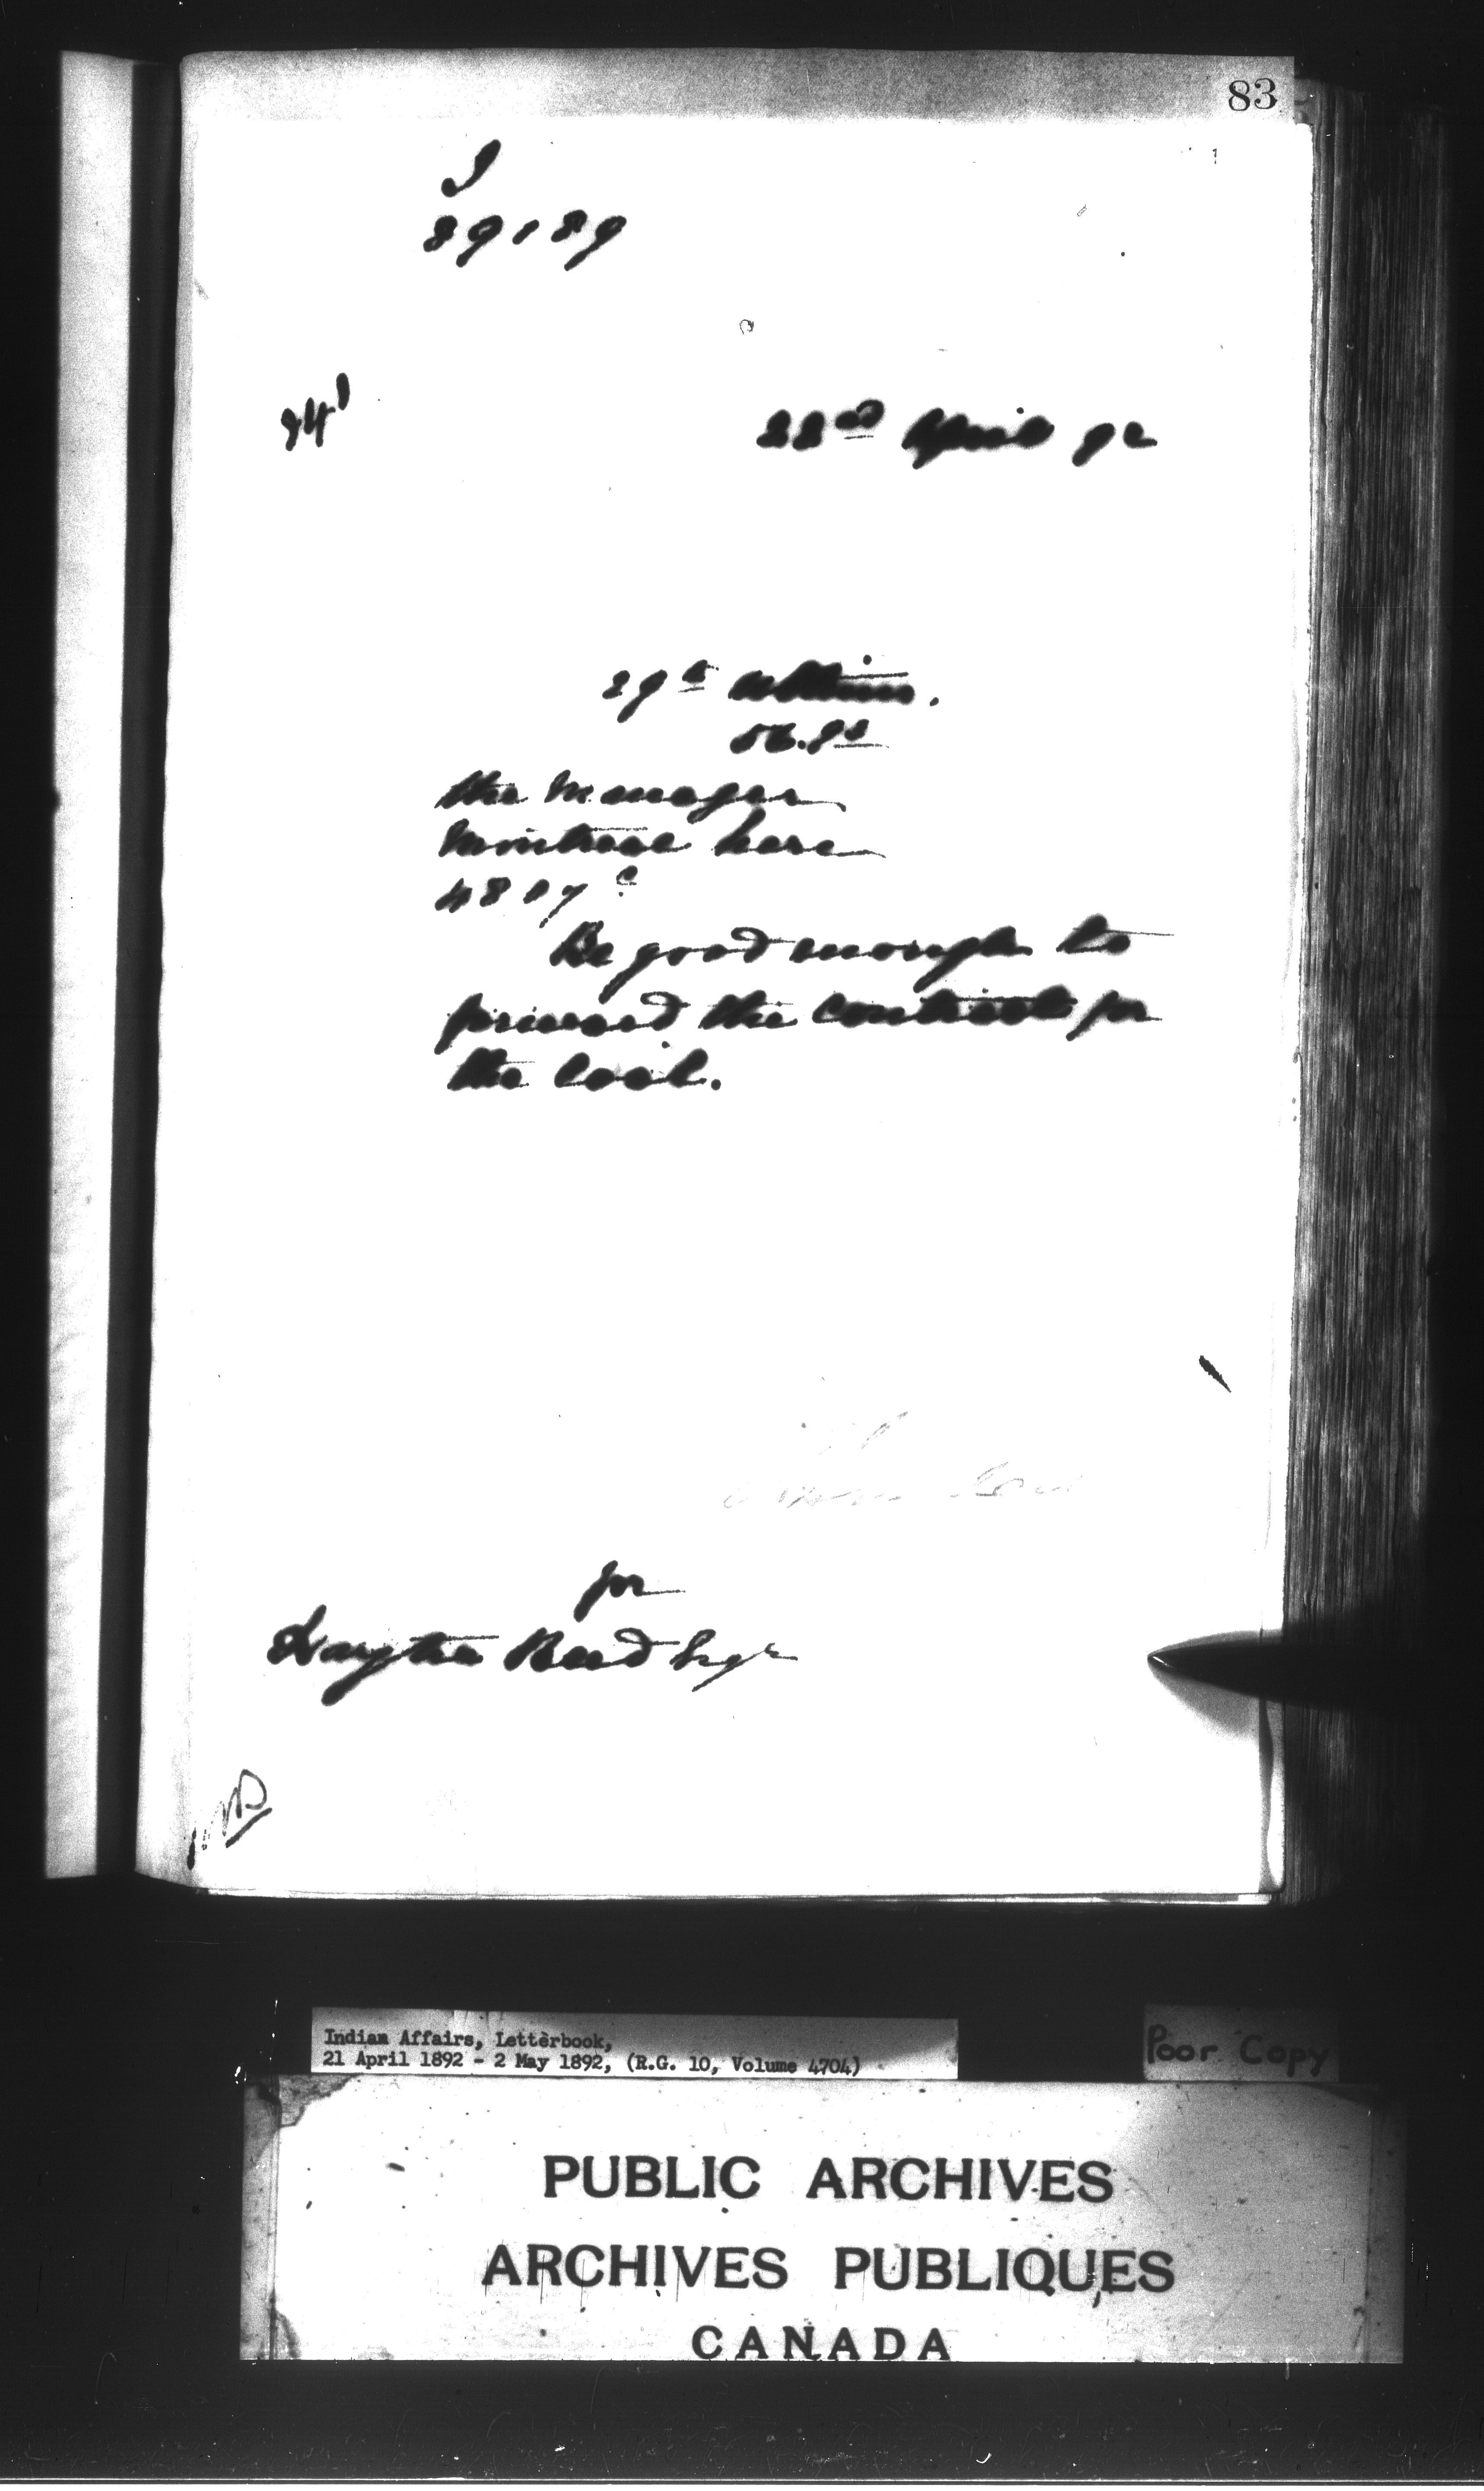 83
89189
22nd April 92
29th ultimo.
56.82
the Manager
Montreal here
4817c
Be good enough to
forward the contract for
the coal.
for
Hayter Reed Esqr
Indian Affairs, Letterbook,
21 April 1892 - 2 May 1892, (R.G. 10, Volume 4704)
Poor Copy
PUBLIC ARCHIVES
ARCHIVES PUBLIQUES
CANADA